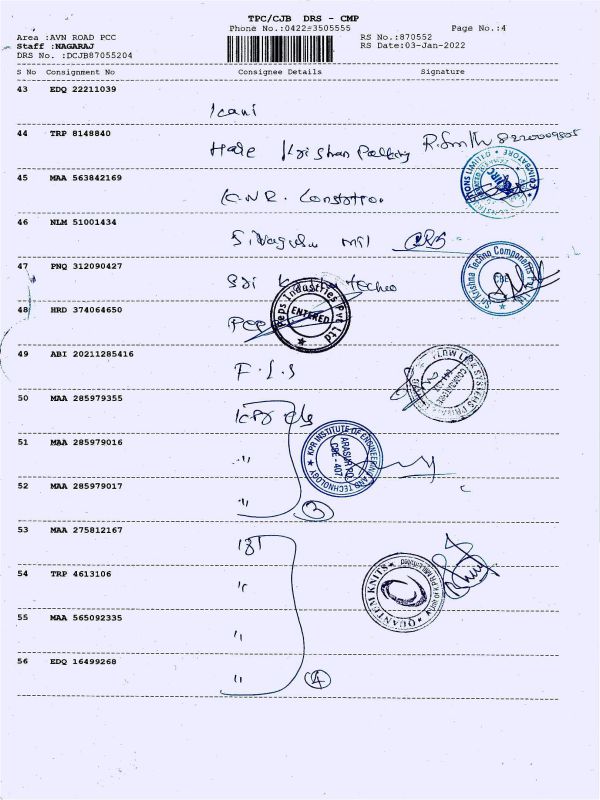 TPC/CJB DRS - CMP
Phone No.:0422±3505555 Page No.:4
Area :AVN ROAD PCC RS No.:870552
Staff :NAGARAJ RS Date:03-Jan-2022
DRS No. :DCJB87055204
S No Consignment No Consignee Details Signature
43 EDQ 22211039
44 TRP 8148840
R. Smith
45 MAA 563842169
K.N.R.
COIMBATORE
46 NLM 51001434
47 PNQ 312090427
Sri Techno
Sri Krishna Techno Components Pvt Ltd
CBE
48 HRD 374064650
Peps Industries Pvt Ltd
ENTERED
49 ABI 20211285416
F.L.S
FLOW LINK SYSTEMS PRIVATE
COIMBATORE
50 MAA 285979355
KPR
51 MAA 285979016
"
KPR INSTITUTE OF ENGINEERING AND TECHNOLOGY
ARASUR PO.
CBE - 407
52 MAA 285979017
"
3
53 MAA 275812167
54 TRP 4613106
"
QUANTUM KNITS
55 MAA 565092335
"
56 EDQ 16499268
"
4